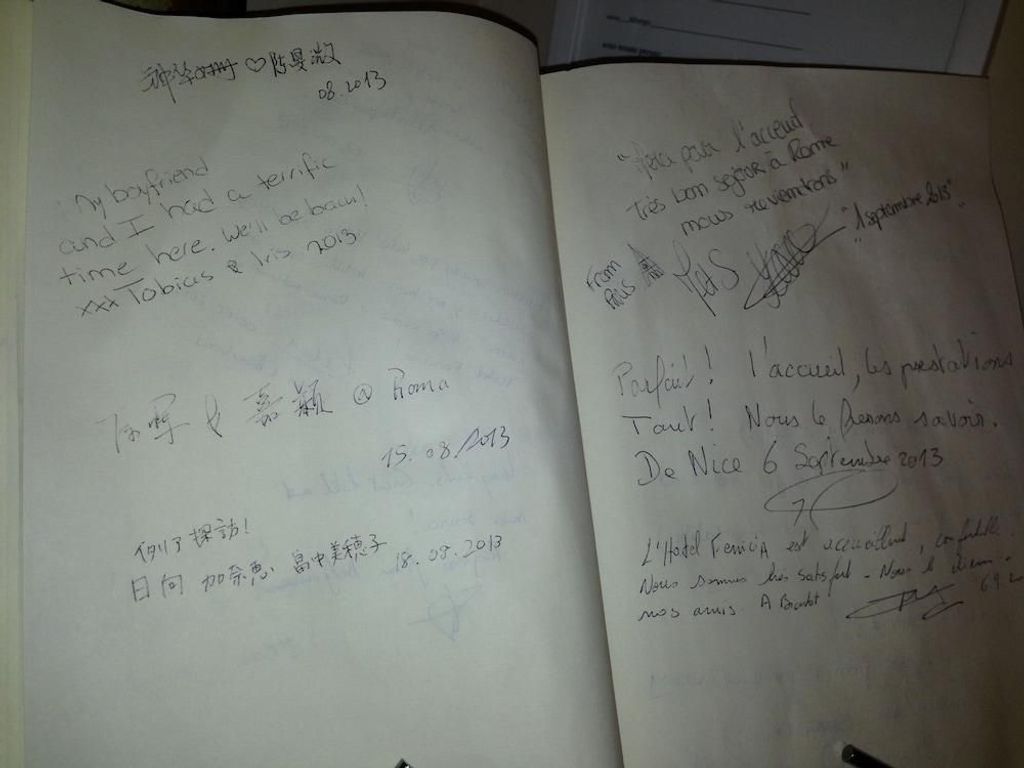 ♡ 陈
08.2013
My boyfriend
and I had a terrific
time here. We'll be back!
xxx Tobias & Iris 2013
& 嘉颖 @ Roma
15.08.2013
探訪!
日向 加奈恵 畠中美穂子 18.09.2013
"Merci pour l'accueil
Très bon séjour à Rome
nous reviendrons"
"1 septembre 2013"
From
Paris
Parfait! l'accueil, les prestations
Tout! Nous le ferons savoir.
De Nice 6 Septembre 2013
L'Hotel Fenicia est accueillant, confortable.
Nous sommes très satisfait - Nous le dirons
nos amis. A